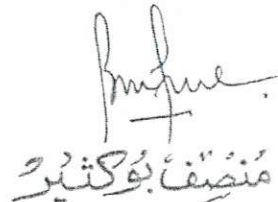 مُنصِّف بُوكثيرُ